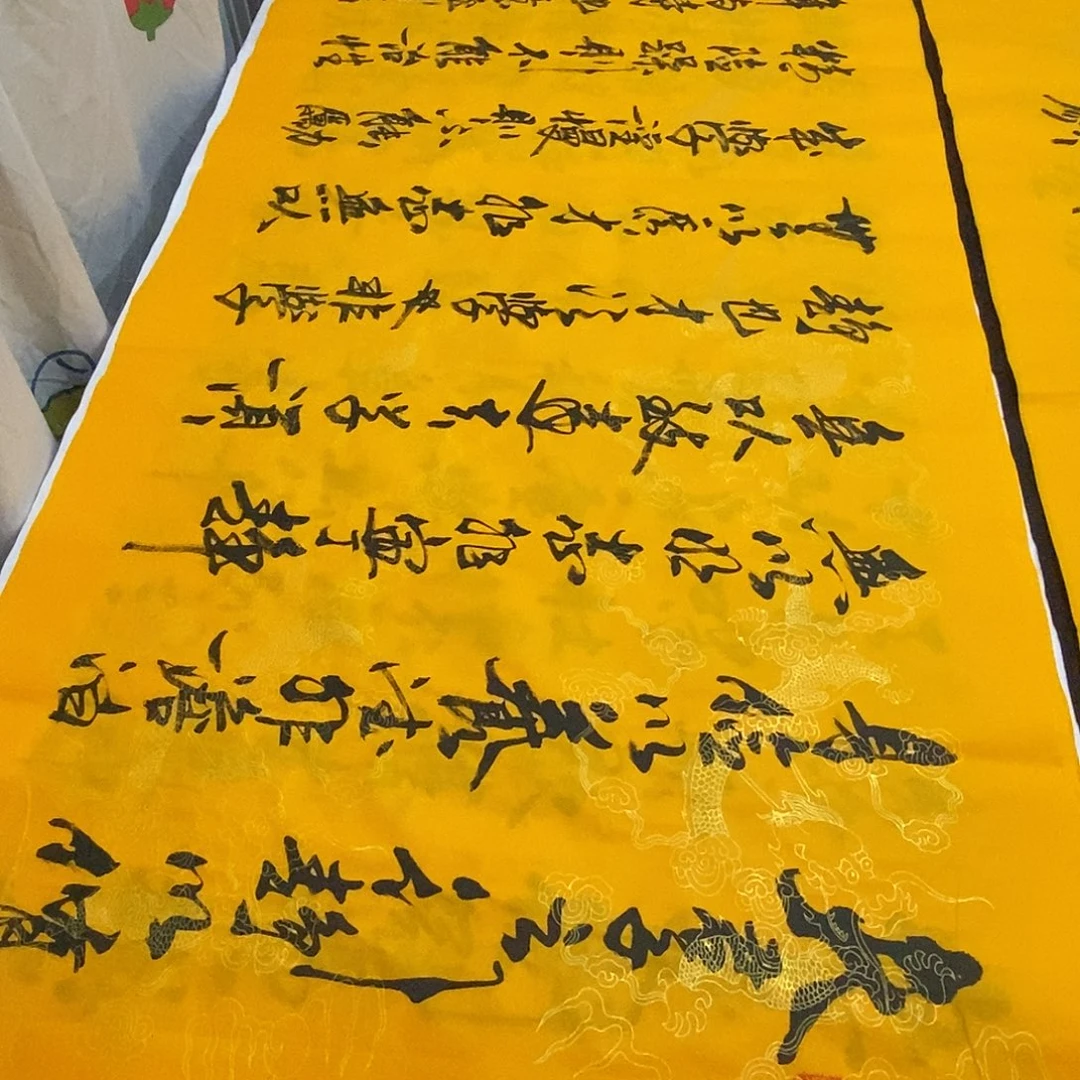 夫君子之行靜以修
身儉以養德非澹泊
無以明志非寧靜
無以致遠夫學須
靜也才須學也非學
無以廣才非志無以
成學淫慢則不能勵
精險躁則不能治性